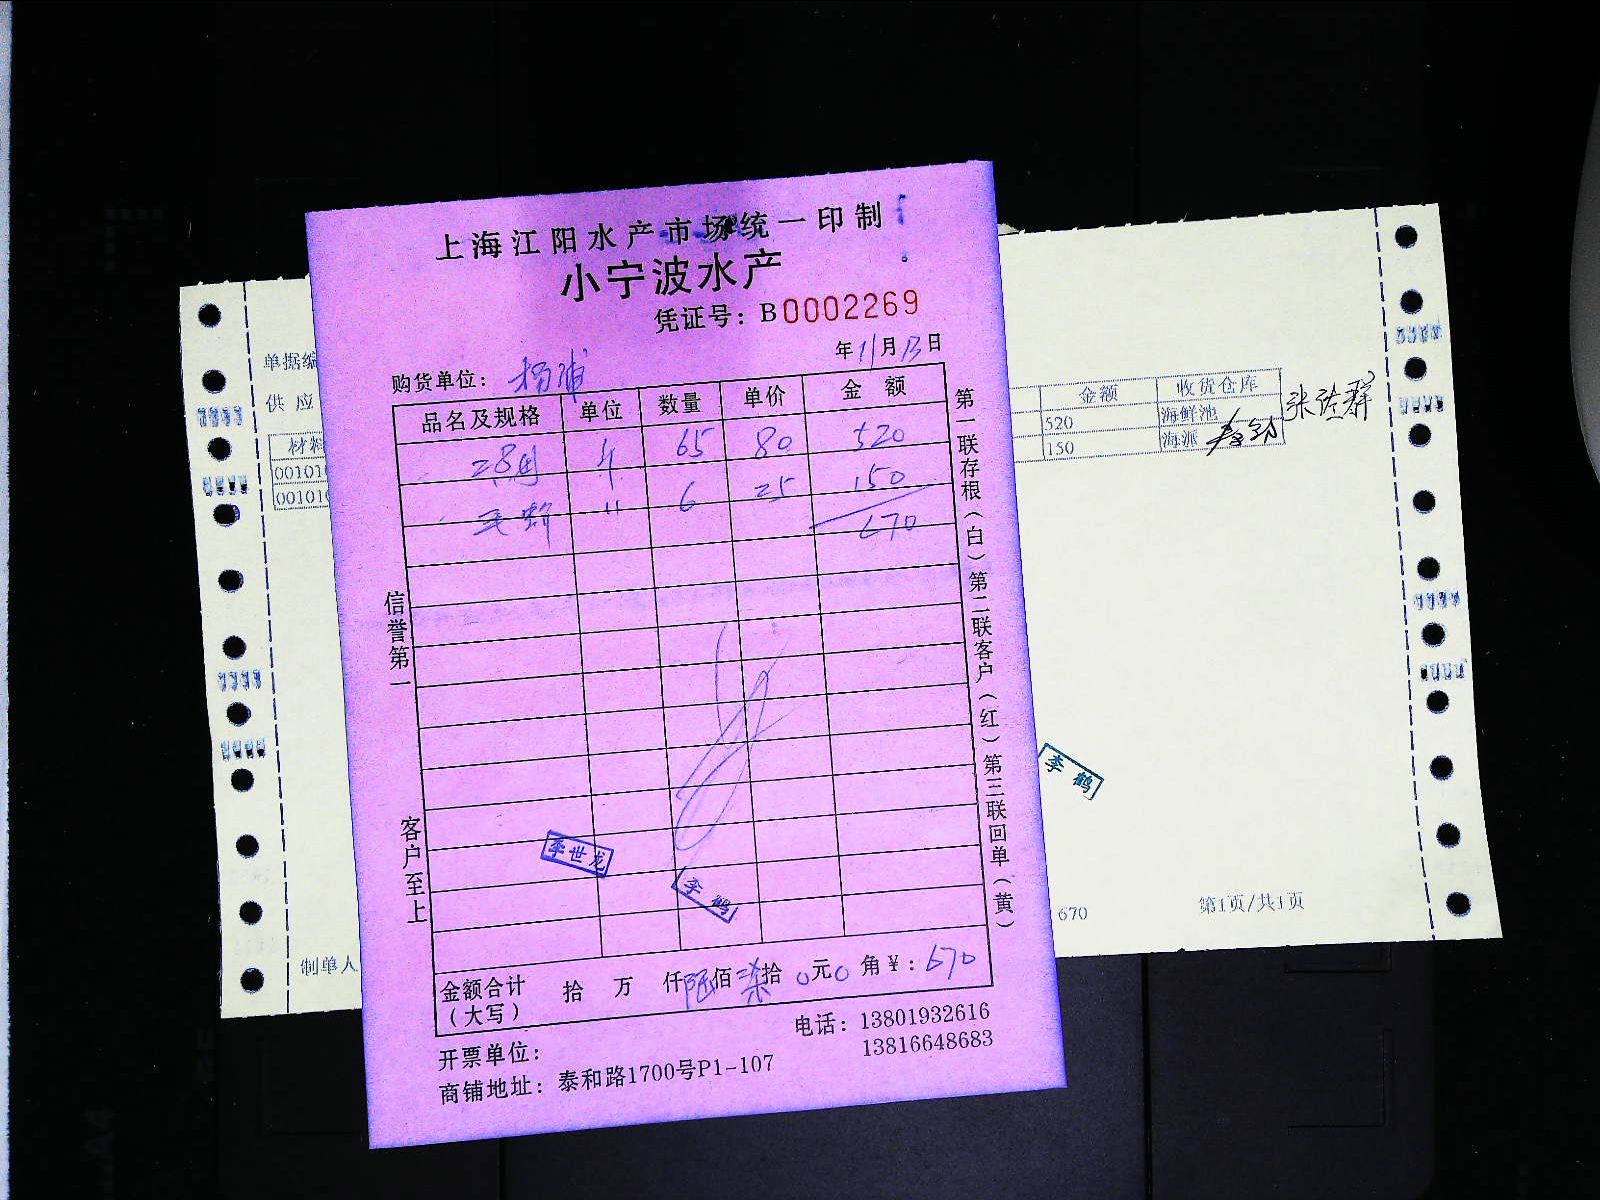 上海江阳水产市场统一印制
小宁波水产
凭证号：B0002269
年11月13日
购货单位：杨浦
品名及规格 单位 数量 单价 金额
65 80 520
毛蚶 〃 6 25 150
670
信誉第一
客户至上
第一联存根（白）第二联客户（红）第三联回单（黄）
李世龙
李鹤
金额合计（大写） 拾 万 仟陆佰柒拾0元0角￥：670
开票单位：
电话：13801932616
13816648683
商铺地址：泰和路1700号P1-107
单据编
供应
材料
00101
00101
制单人
金额 收货仓库
520 海鲜池
150 海派
李鹤
670
第1页/共1页